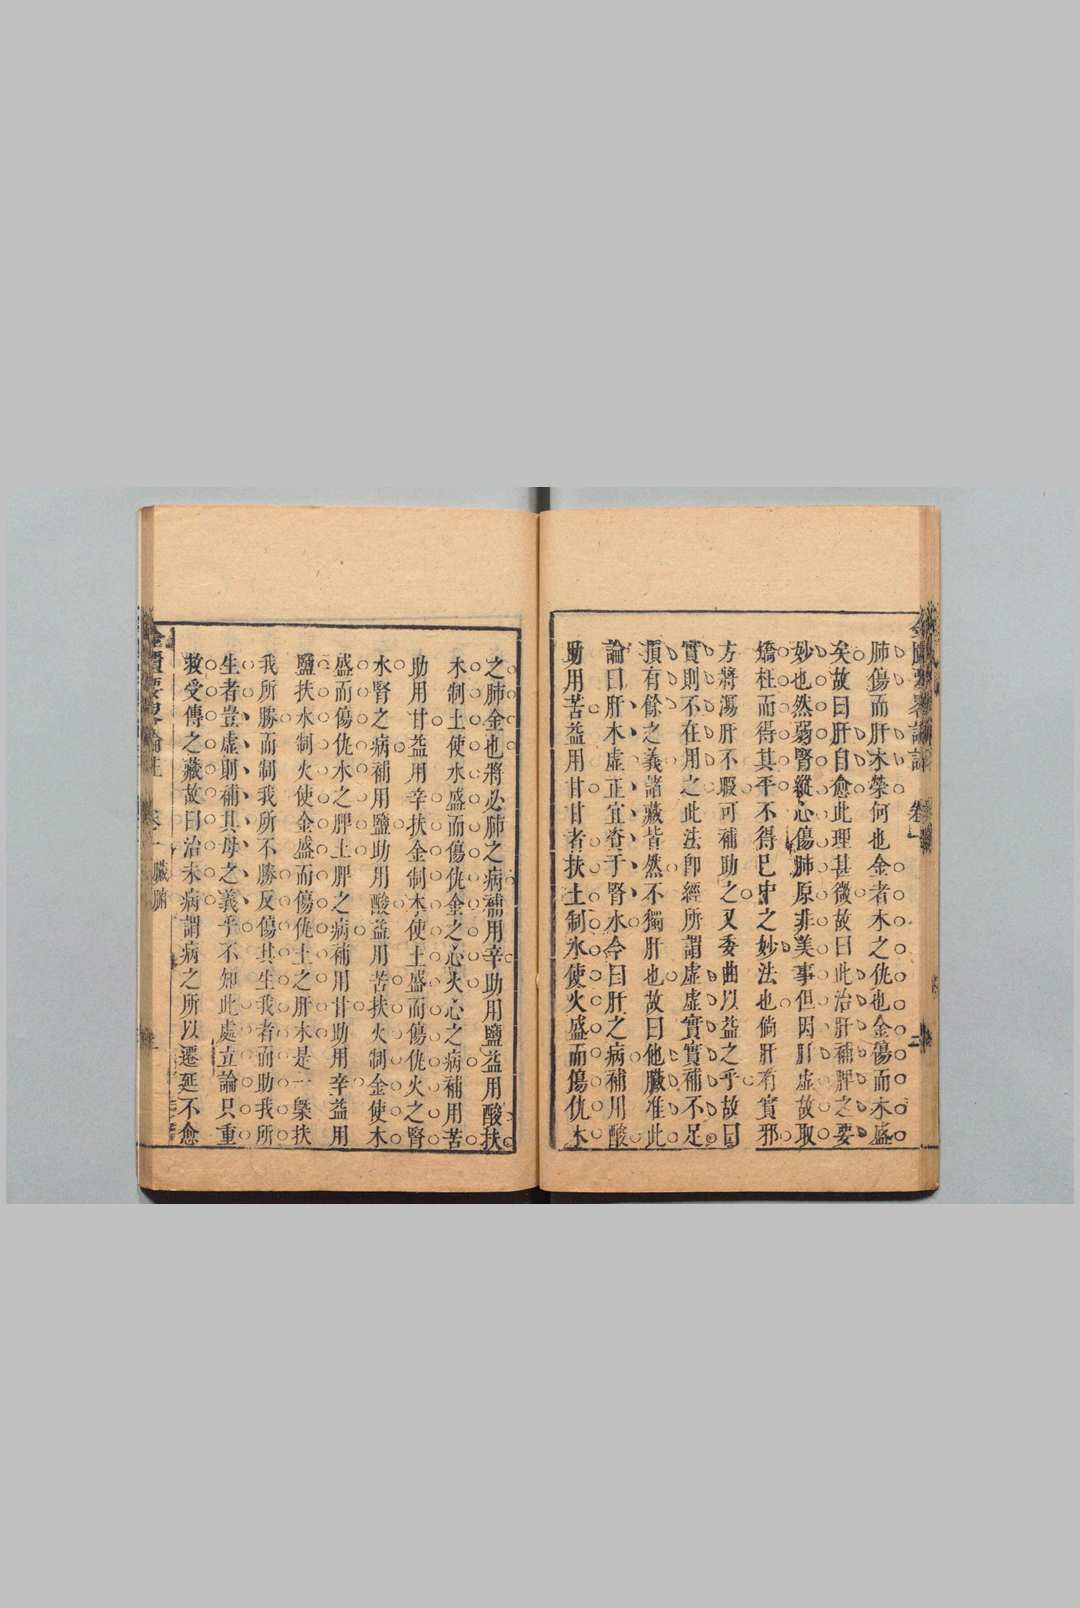 肺傷而肝木榮何也金者木之仇也金傷而木盛
矣故曰肝自愈此理甚微故曰此治肝補脾之要
妙也然弱腎縱心傷肺原非美事但因肝虛故取
矯枉而得其平不得已中之妙法也倘肝有實邪
方將瀉肝不暇可補助之又委曲以益之乎故曰
實則不在用之此法即經所謂虛虛實實補不足
損有餘之義諸藏皆然不獨肝也故曰他臟准此
論曰肝木虛正宜資于腎水今曰肝之病補用酸
助用苦益用甘甘者扶土制水使火盛而傷仇木
之肺金也將必肺之病補用辛助用鹽益用酸扶
木制土使水盛而傷仇金之心火心之病補用苦
助用甘益用辛扶金制木使土盛而傷仇火之腎
水腎之病補用鹽助用酸益用苦扶火制金使木
盛而傷仇水之脾土脾之病補用甘助用辛益用
鹽扶水制火使金盛而傷仇土之肝木是一槩扶
我所勝而制我所不勝反傷其生我者而助我所
生者豈虛則補其母之義乎不知此處立論只重
救受傳之藏故曰治未病謂病之所以遷延不愈
金匱要畧論註 卷一 臟腑